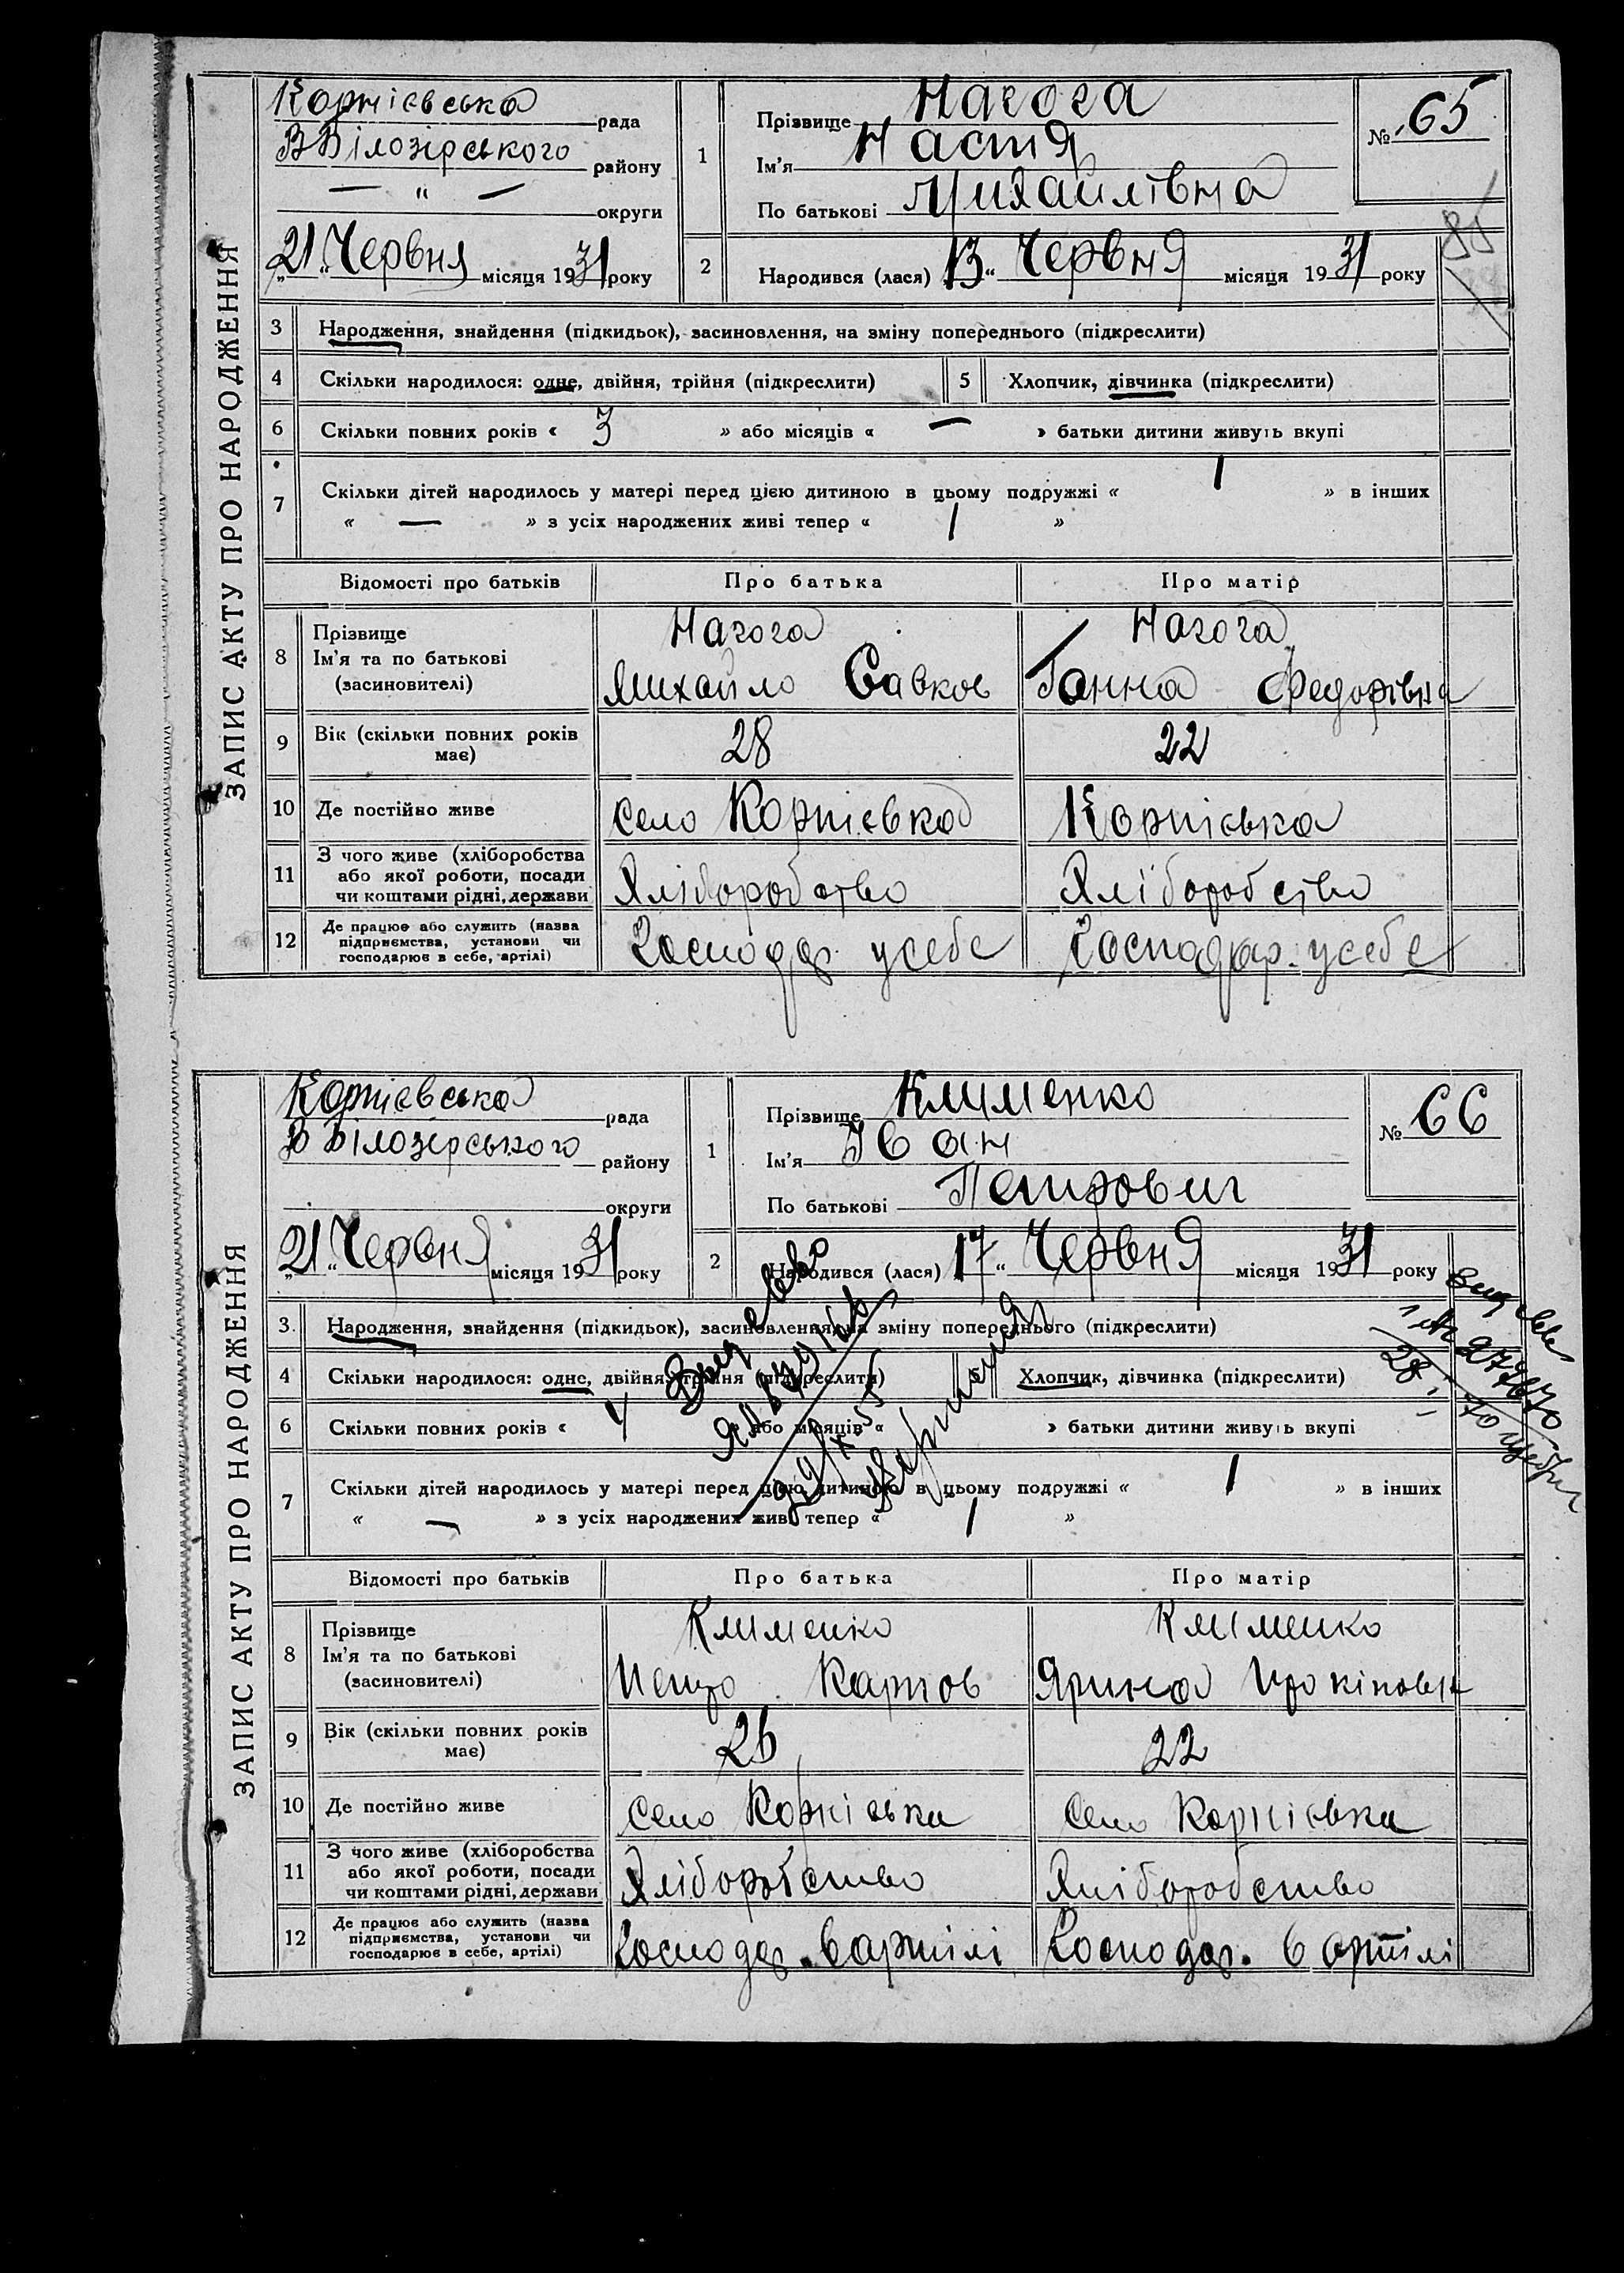 ЗАПИС АКТУ ПРО НАРОДЖЕННЯ
Корнієвська рада
ВБілозірського району
— " — округи
„21“ Червня місяця 1931 року
1
Прізвище Нагога
Ім'я Настя
По батькові Михайлівна
№ 65
85
2
Народився (лася) 13 “ Червня місяця 1931 року
3 Народження, знайдення (підкидьок), засиновлення, на зміну попереднього (підкреслити)
4 Скільки народилося: одне, двійня, трійня (підкреслити) 5 Хлопчик, дівчинка (підкреслити)
6 Скільки повних років « 3 » або місяців « — » батьки дитини живуть вкупі
7 Скільки дітей народилось у матері перед цією дитиною в цьому подружжі « 1 » в інших
« — » з усіх народжених живі тепер « 1 »
Відомості про батьків Про батька Про матір
8 Прізвище Нагога Нагога
Ім'я та по батькові (засиновителі) Михайло Савков Ганна Федорівна
9 Вік (скільки повних років має) 28 22
10 Де постійно живе село Корнієвка Корнієвка
11 З чого живе (хліборобства або якої роботи, посади чи коштами рідні, держави Хліборобство Хліборобство
12 Де працює або служить (назва підприємства, установи чи господарює в себе, артілі) Господар. усебе Господар. усебе
ЗАПИС АКТУ ПРО НАРОДЖЕННЯ
Корнієвська рада
ВБілозірського району
округи
„21“ Червня місяця 1931 року
1
Прізвище Клименко
Ім'я Іван
По батькові Петрович
№ 66
2
Народився (лася) 17 “ Червня місяця 1931 року
3. Народження, знайдення (підкидьок), засиновлення, на зміну попереднього (підкреслити)
4 Скільки народилося: одне, двійня, трійня (підкреслити) 5 Хлопчик, дівчинка (підкреслити)
6 Скільки повних років « 4 » або місяців « » батьки дитини живуть вкупі
7 Скільки дітей народилось у матері перед цією дитиною в цьому подружжі « 1 » в інших
« — » з усіх народжених живі тепер « 1 »
Відомості про батьків Про батька Про матір
8 Прізвище Клименко Клименко
Ім'я та по батькові (засиновителі) Петро Карпов Ярина
9 Вік (скільки повних років має) 26 22
10 Де постійно живе село Корнієвка село Корнієвка
11 З чого живе (хліборобства або якої роботи, посади чи коштами рідні, держави Хліборобство Хліборобство
12 Де працює або служить (назва підприємства, установи чи господарює в себе, артілі) Господар. вартілі Господар. в артілі